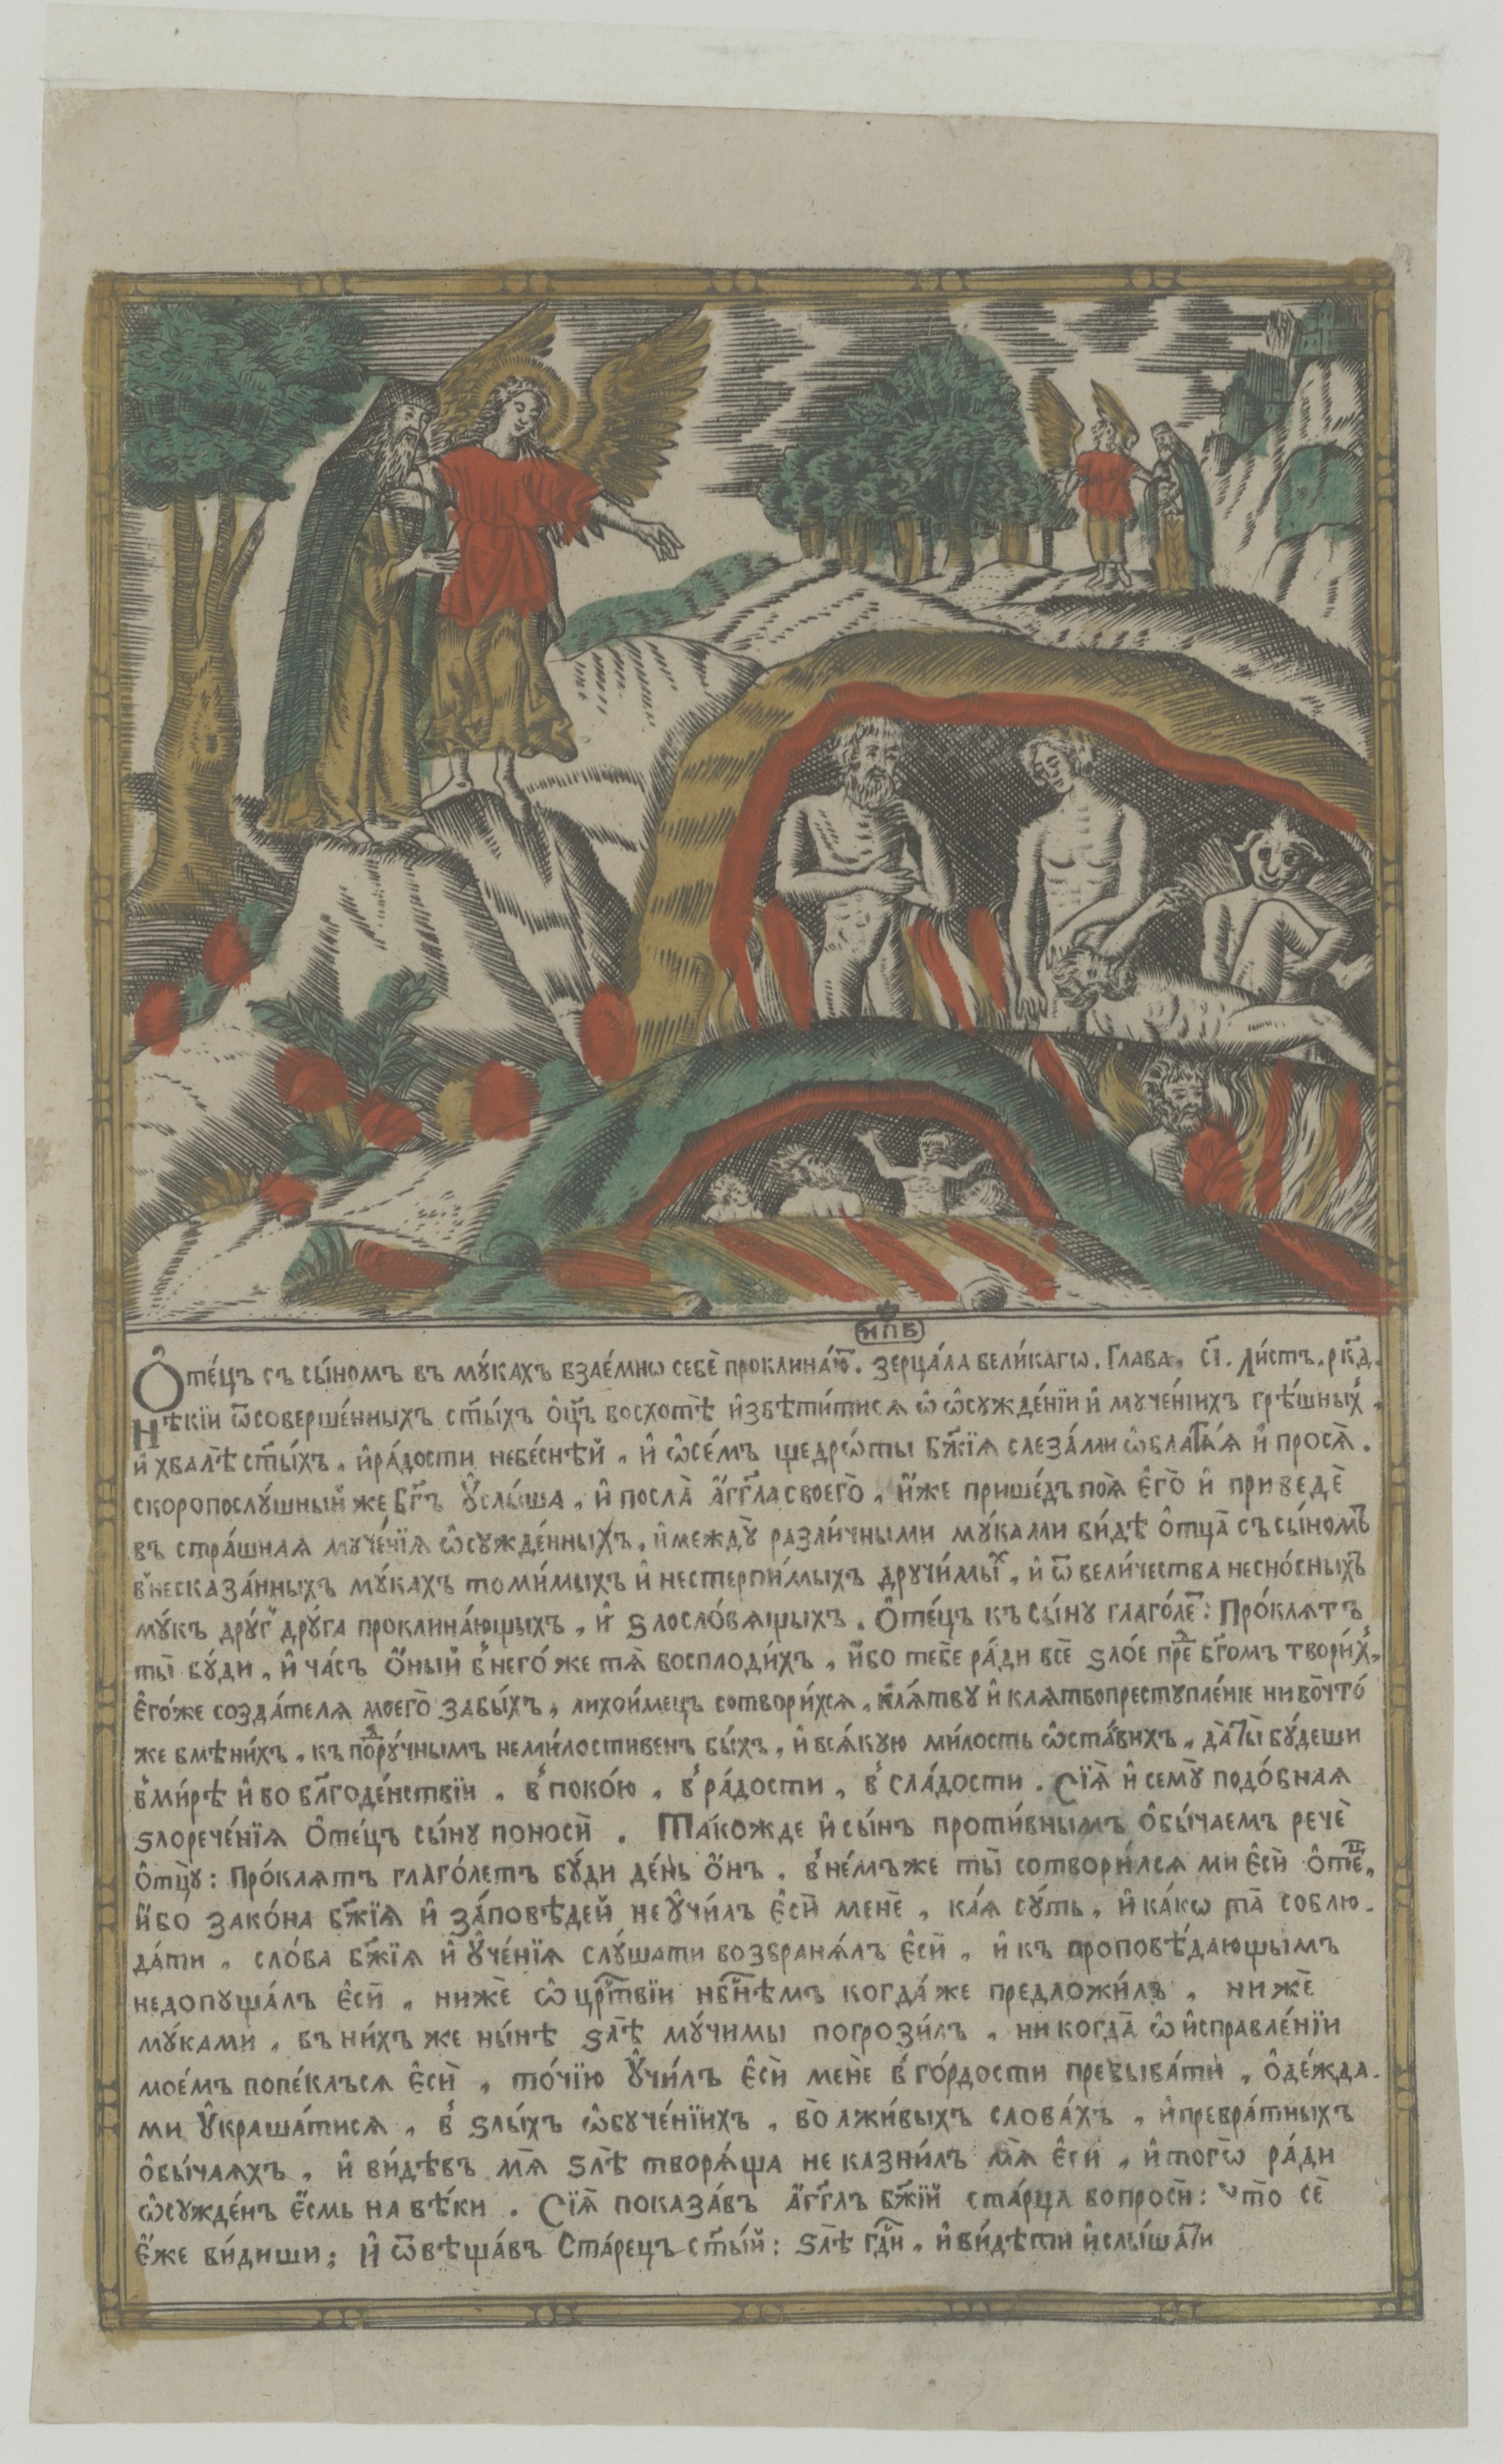 ИПБ
Ѻ҆те́цъ съ сы́номъ въ му́кахъ взае́мнѡ себѐ проклина́ю҃т. Зерца́ла вели́кагѡ. Глава̀, с҃і. ли́стъ. рк҃д.
Нѣ́кїи ѿсоверше́нныхъ ст҃ы́хъ ѻ҆ц҃ъ восхотѣ̀ и҆звѣти́тисѧ ѡ҆ ѡ҆сужде́нїи и҆ муче́нїихъ грѣ́шныⷯ,
и҆ хвалѣ̀ ст҃ы́хъ, и҆ра́дости небе́снѣй, и҆ ѡ҆се́мъ щедрѡ́ты бж҃їѧ слеза́ми ѡ҆блага́ѧ и҆ просѧ̀.
скоропослу́шный же бг҃ъ ᲂу҆слы́ша, и҆ посла̀ а҆́гг҃ла своего̀, и҆́же прише́дъ поѧ̀ є҆го̀ и҆ приведѐ
въ стра́шнаѧ муче́нїѧ ѡ҆сужде́нныхъ, и҆между̀ разли́чными му́ками ви́дѣ ѻ҆тца̀ съ сы́номъ
в̾несказа́нныхъ му́кахъ томи́мыхъ и҆ нестерпи́мыхъ дручи́мыⷯ, и҆ ѿ вели́чества несно́сныхъ
му́къ дру́гъ дру́га проклина́ющыхъ, и҆ ѕлосло́вѧщыхъ. Ѻ҆те́цъ къ сы́ну глаго́леⷮ: Про́клѧтъ
ты̀ бу́ди, и҆ ча́съ ѻ҆́ный в̾него́ же тѧ̀ восплоди́хъ, и҆́бо тебѐ ра́ди всѐ ѕло́е преⷣ бг҃омъ твори́хъ,
є҆го́же созда́телѧ моего̀ забы́хъ, лихои́мецъ сотвори́хсѧ, клѧ́тву и҆ клѧтвопреступле́нїе ни во́что
же вмѣни́хъ, къ поⷣру́чнымъ неми́лостивенъ бы́хъ, и҆ всѧ́кую ми́лость ѡ҆ста́вихъ, да̀ты̀ бу́деши
в̾ми́рѣ и҆ во бл҃годе́нствїи, в̾ поко́ю, в̾ ра́дости, в̾ сла́дости. Сїѧ̀ и҆ сему̀ подо́бнаѧ
ѕлорече́нїѧ ѻ҆те́цъ сы́ну поносѝ. Та́кожде и҆ сы́нъ проти́внымъ ѻ҆бы́чаемъ речѐ
ѻ҆тцу̀: Про́клѧтъ глаго́летъ бу́ди де́нь ѻ҆́нъ, в̾не́мъже ты̀ сотвори́лсѧ ми є҆сѝ ѻ҆теⷰ,
и҆́бо зако́на бж҃їѧ и҆ за́повѣдей не ᲂу҆чи́лъ є҆сѝ менѐ, ка́ѧ су́ть, и҆ ка́кѡ та̀ соблю-
да́ти, сло́ва бж҃їѧ и҆ ᲂу҆че́нїѧ слу́шати возбранѧ́лъ є҆сѝ, и҆ къ проповѣ́дающымъ
недопуща́лъ є҆сѝ, нижѐ ѡ҆ црⷭ҇твїи нбⷭ҇нѣмъ когда́ же предложи́лъ, нижѐ
му́ками, въ ни́хъ же ны́нѣ ѕлѣ̀ му́чимы погрози́лъ, ни когда̀ ѡ҆ и҆справле́нїи
мое́мъ попе́клъсѧ є҆сѝ, то́чїю ᲂу҆чи́лъ є҆сѝ менѐ в̾ го́рдости превыва́ти, ѻ҆де́жда-
ми ᲂу҆краша́тисѧ, в̾ ѕлы́хъ ѡ҆буче́нїихъ, во̀ лжи́выхъ слова́хъ, и҆превра́тныхъ
ѻ҆бы́чаѧхъ, и҆ ви́дѣвъ мѧ̀ ѕлѣ̀ творѧ́ща не казни́лъ мѧ̀ є҆сѝ, и҆ тогѡ̀ ра́ди
ѡ҆сужде́нъ є҆́смь на вѣ́ки. Сїѧ̀ показа́въ а҆́гг҃лъ бж҃їй ста́рца вопросѝ: что̀ сѐ
є҆́же ви́диши; И҆ ѿвѣща́въ Ста́рецъ ст҃ы́й: ѕлѣ̀ гдⷭ҇и, и҆ ви́дѣти и҆ слы́шати